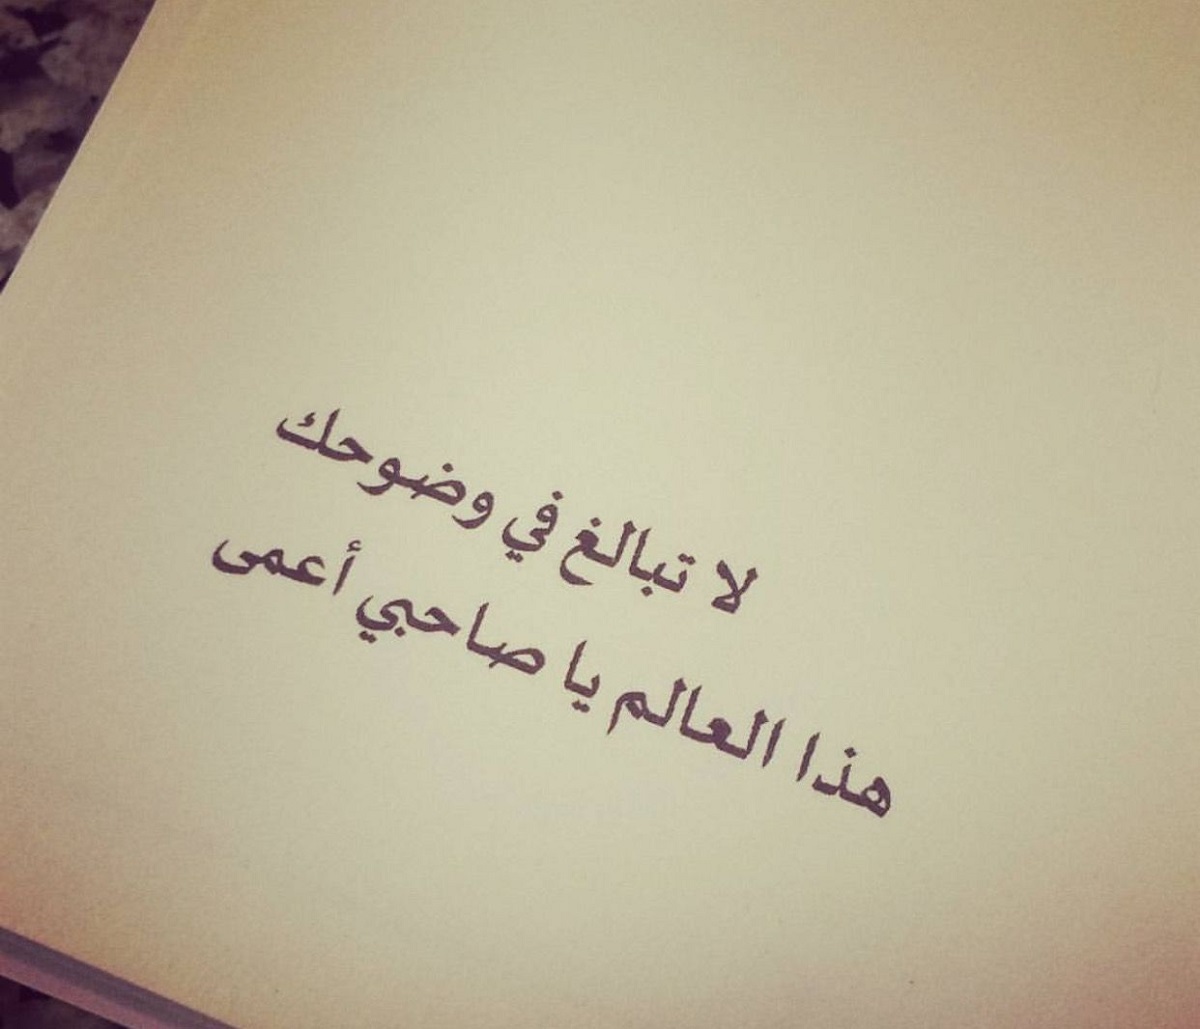 لا تبالغ في وضوحك
هذا العالم يا صاحبي أعمى